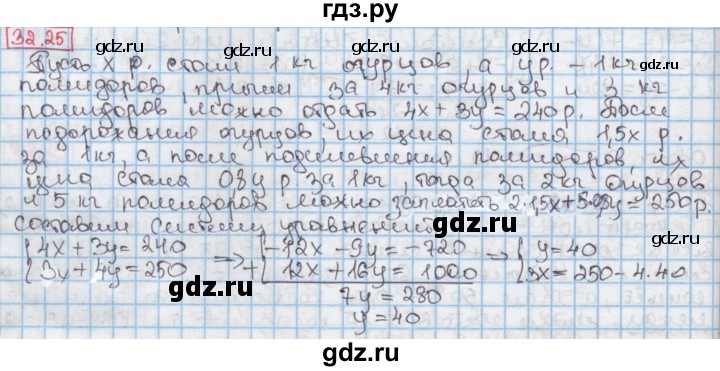 гдз.ру
32.25
gdz.ru gdz.ru gdz.ru
Пусть х р. стоил 1 кг огурцов, а у р. – 1 кг
помидоров, причём за 4 кг огурцов и 3 кг
помидоров можно отдать 4x + 3y = 240 р. После
gdz.ru gdz.ru
подорожания огурцов, их цена стала 1,5x р.
за 1 кг, а после подешевления помидоров, их
gdz.ru gdz.ru gdz.ru
цена стала 0,8y р. за 1 кг, тогда за 2 кг огурцов
и 5 кг помидоров можно заплатить 2·1,5x+5·0,8y = 250 р.
gdz.ru gdz.ru
Составим систему уравнений:
{4x + 3y = 240 => {-12x - 9y = -720 => {y = 40
{3x + 4y = 250 + {12x + 16y = 1000 {3x = 250 - 4·40
gdz.ru gdz.ru gdz.ru
7y = 280
y = 40
gdz.ru gdz.ru